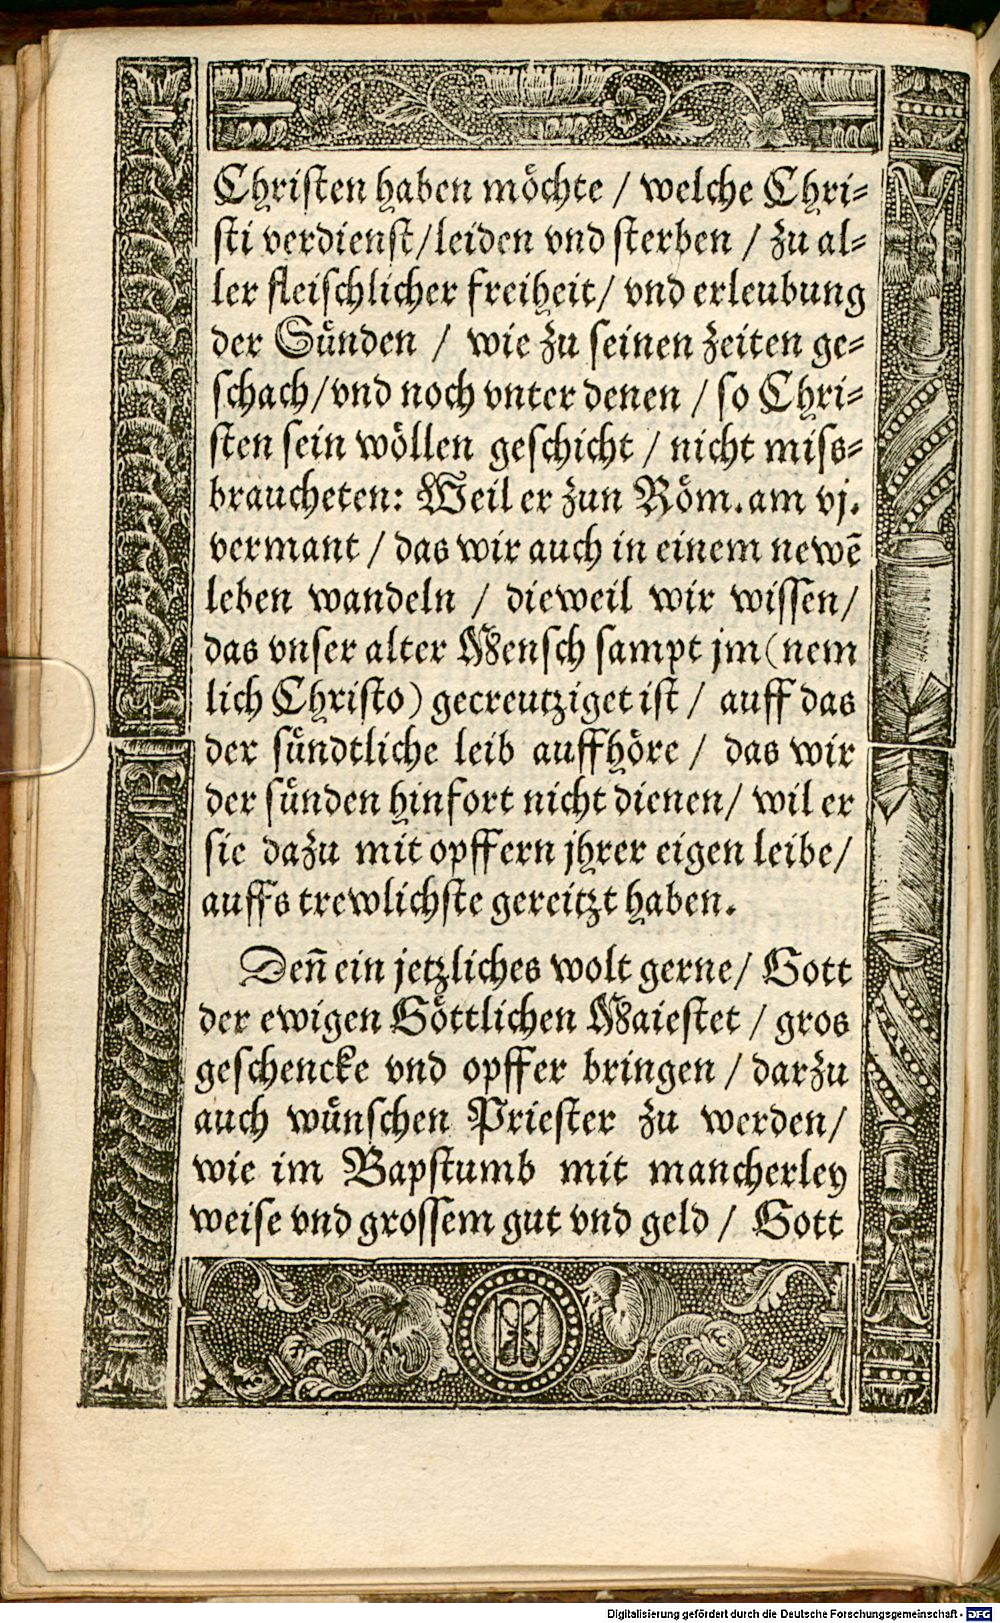 Christen haben möchte / welche Chri=
sti verdienst/leiden vnd sterben / zu al=
ler fleischlicher freiheit/ vnd erleubung
der Sünden / wie zu seinen zeiten ge=
schach/vnd noch vnter denen / so Chri=
sten sein wöllen geschicht / nicht miss=
braucheten: Weil er zun Röm. am vj.
vermant / das wir auch in einem newē
leben wandeln / dieweil wir wissen/
das vnser alter Mensch sampt jm (nem
lich Christo) gecreutziget ist / auff das
der sündtliche leib auffhöre / das wir
der sünden hinfort nicht dienen/ wil er
sie dazu mit opffern jhrer eigen leibe/
auffs trewlichste gereitzt haben.
Deñ ein jetzliches wolt gerne/ Gott
der ewigen Göttlichen Maiestet / gros
geschencke vnd opffer bringen / darzu
auch wünschen Priester zu werden/
wie im Bapstumb mit mancherley
weise vnd grossem gut vnd geld / Gott
Digitalisierung gefördert durch die Deutsche Forschungsgemeinschaft - DFG